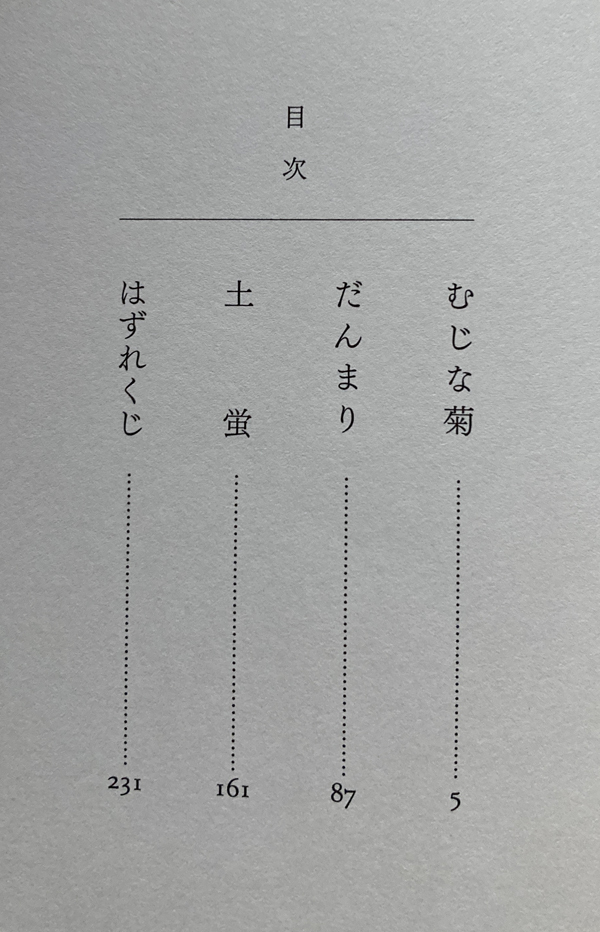 目次
むじな菊……5
だんまり……87
土蛍……161
はずれくじ……231